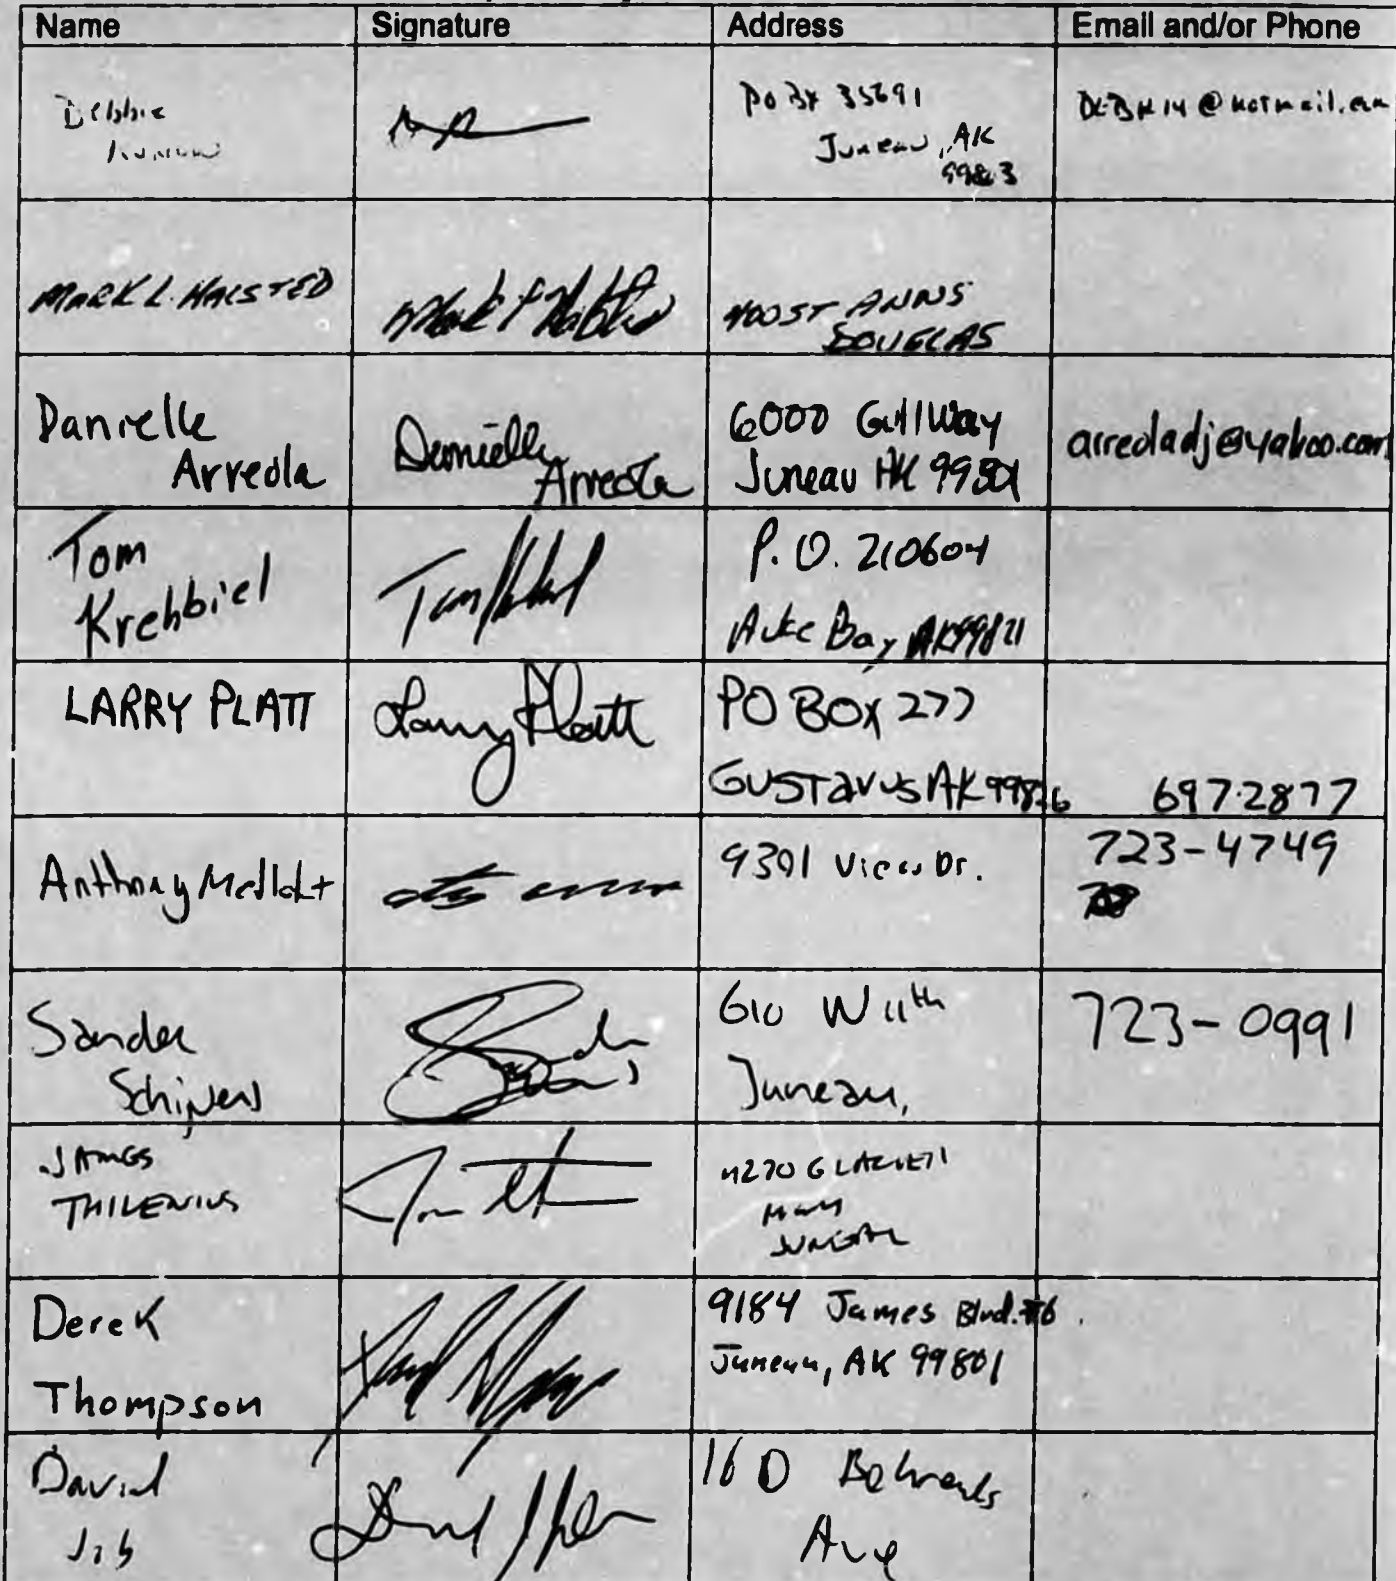 Name Signature Address Email and/or Phone
Debbie
PO BX 35691
Juneau, AK
99803
MARK L. HALSTED
400 ST ANNS
DOUGLAS
Danielle
Arreola
Danielle
Arreola
6000 Gull Way
Juneau AK 99801
arreoladj@yahoo.com
Tom
Krehbiel
P.O. 210604
Auke Bay AK 99821
LARRY PLATT
Larry Platt
PO BOX 277
GUSTAVUS AK 99826
697-2877
Anthony
9301 View Dr.
723-4749
Sander
Schijvens
610 W 11th
Juneau,
723-0991
JAMES
THILENIUS
JUNEAU
Derek
Thompson
9184 James Blvd. #6
Juneau, AK 99801
David
Behrends
Ave